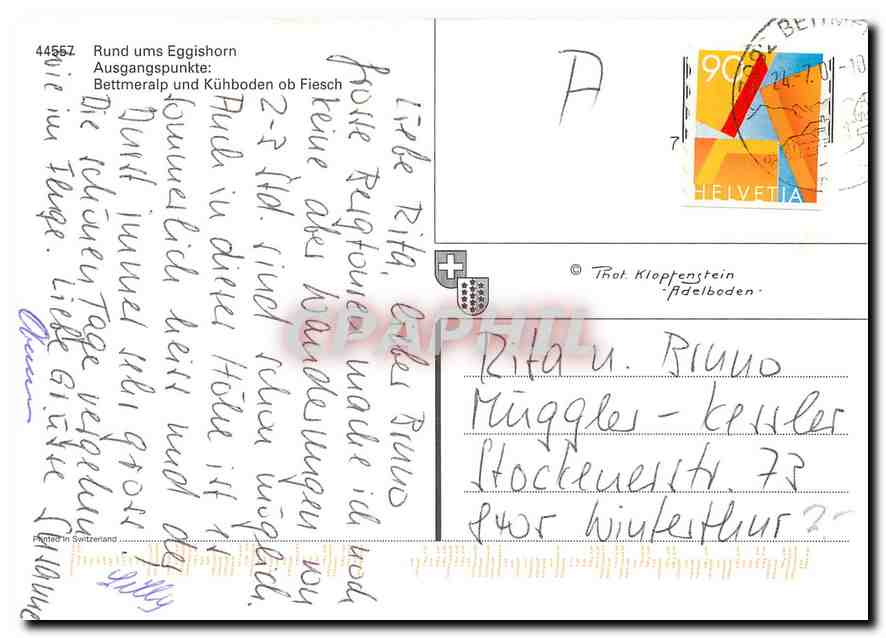 44557 Rund ums Eggishorn
Ausgangspunkte:
Bettmeralp und Kühboden ob Fiesch
Liebe Rita, lieber Bruno
Grosse Bergtouren mache ich noch
keine aber Wanderungen von
2-3 Std. sind schon möglich.
Auch in dieser Höhe ist es
sommerlich heiss und der
Durst immer sehr gross!
Die schönen Tage vergehen
wie im Fluge. Liebe Grüsse Susanne
Printed in Switzerland
A
90
A
HELVETIA
7
BETTM
24.-7.0
-10
© Phot. Klopfenstein
- Adelboden -
CPAPHIL
Rita u. Bruno
Müggler - Kessler
Stockenerstr. 73
8405 Winterthur
2-